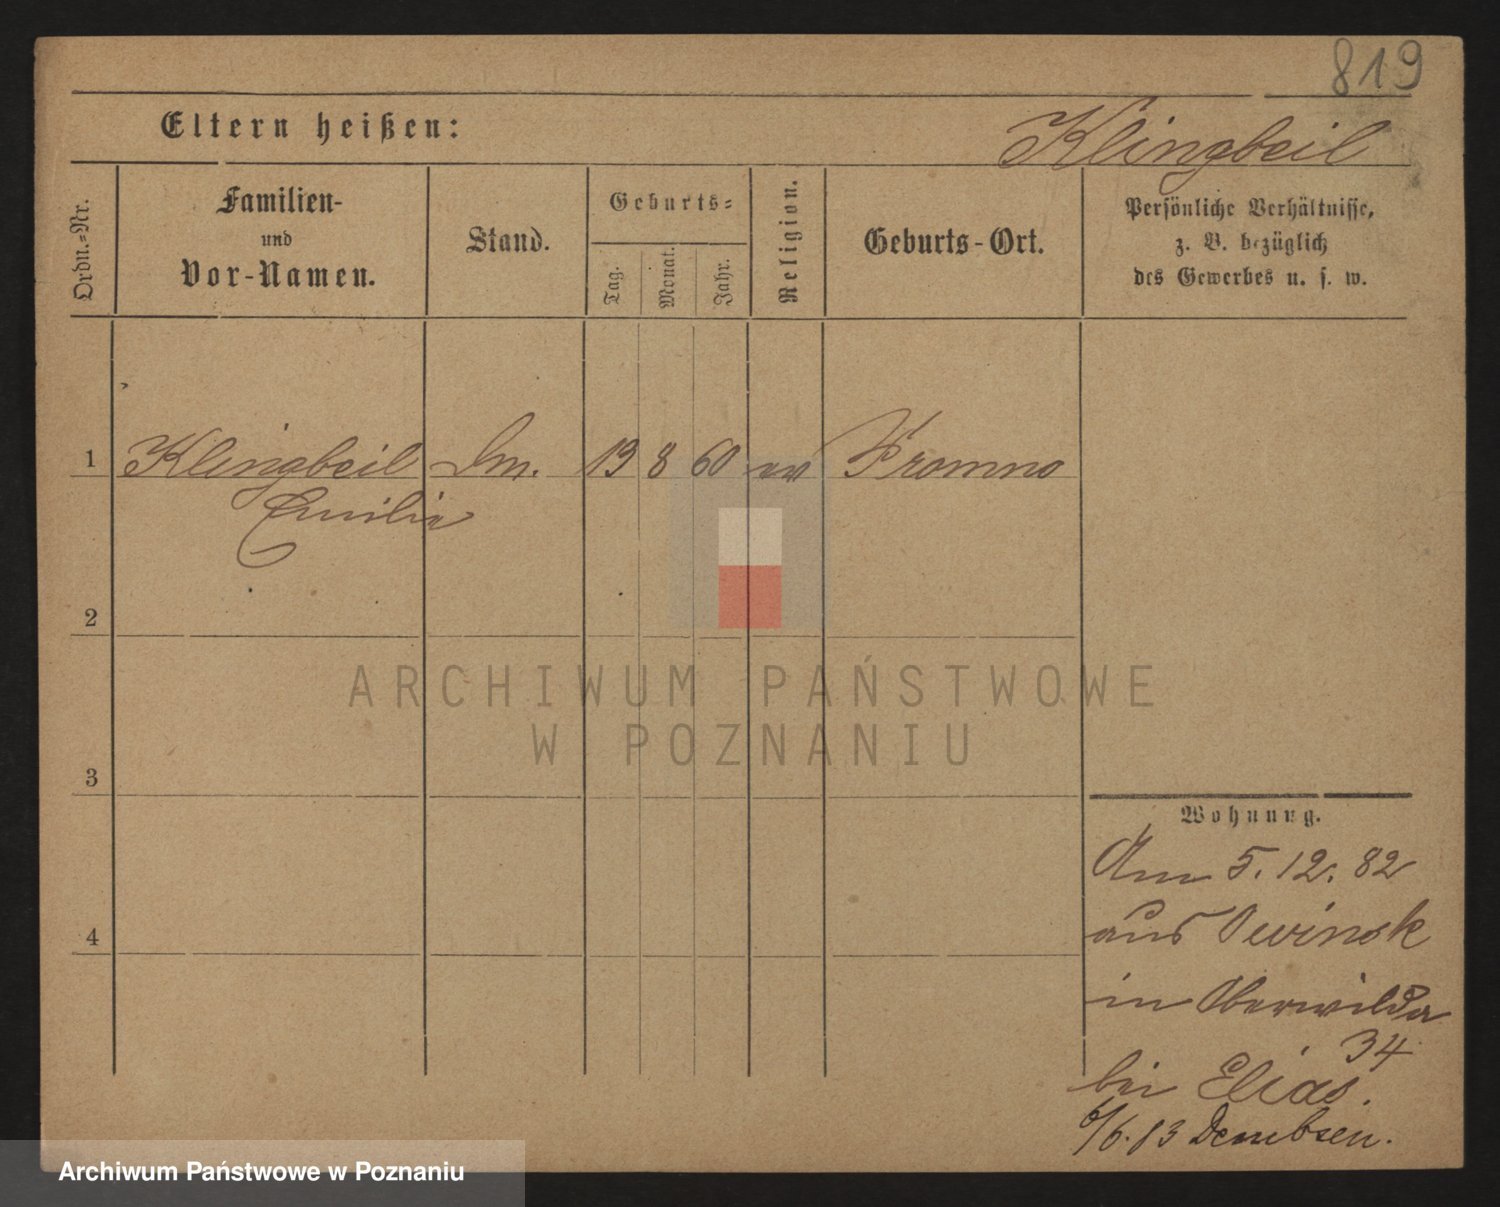 819
Eltern heißen:
Klingbeil
Ordn.=Nr.
Familien-
und
Vor-Namen.
Stand.
Geburts=
Tag.
Monat.
Jahr.
Religion.
Geburts-Ort.
Persönliche Verhältnisse,
z. B. bezüglich
des Gewerbes u. s. w.
1 Klingbeil 19 8 60 ev Fromno
Emilie
2
ARCHIWUM PAŃSTWOWE
W POZNANIU
3
Wohnung.
Am 5. 12. 82
4
aus Owinsk
in Oberwilda
34
bei Elias.
6/6. 83 Dembsen.
Archiwum Państwowe w Poznaniu